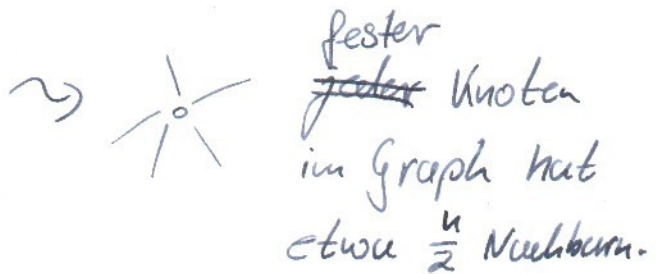 fester
jeder Knoten
im Graph hat
etwa n/2 Nachbarn.